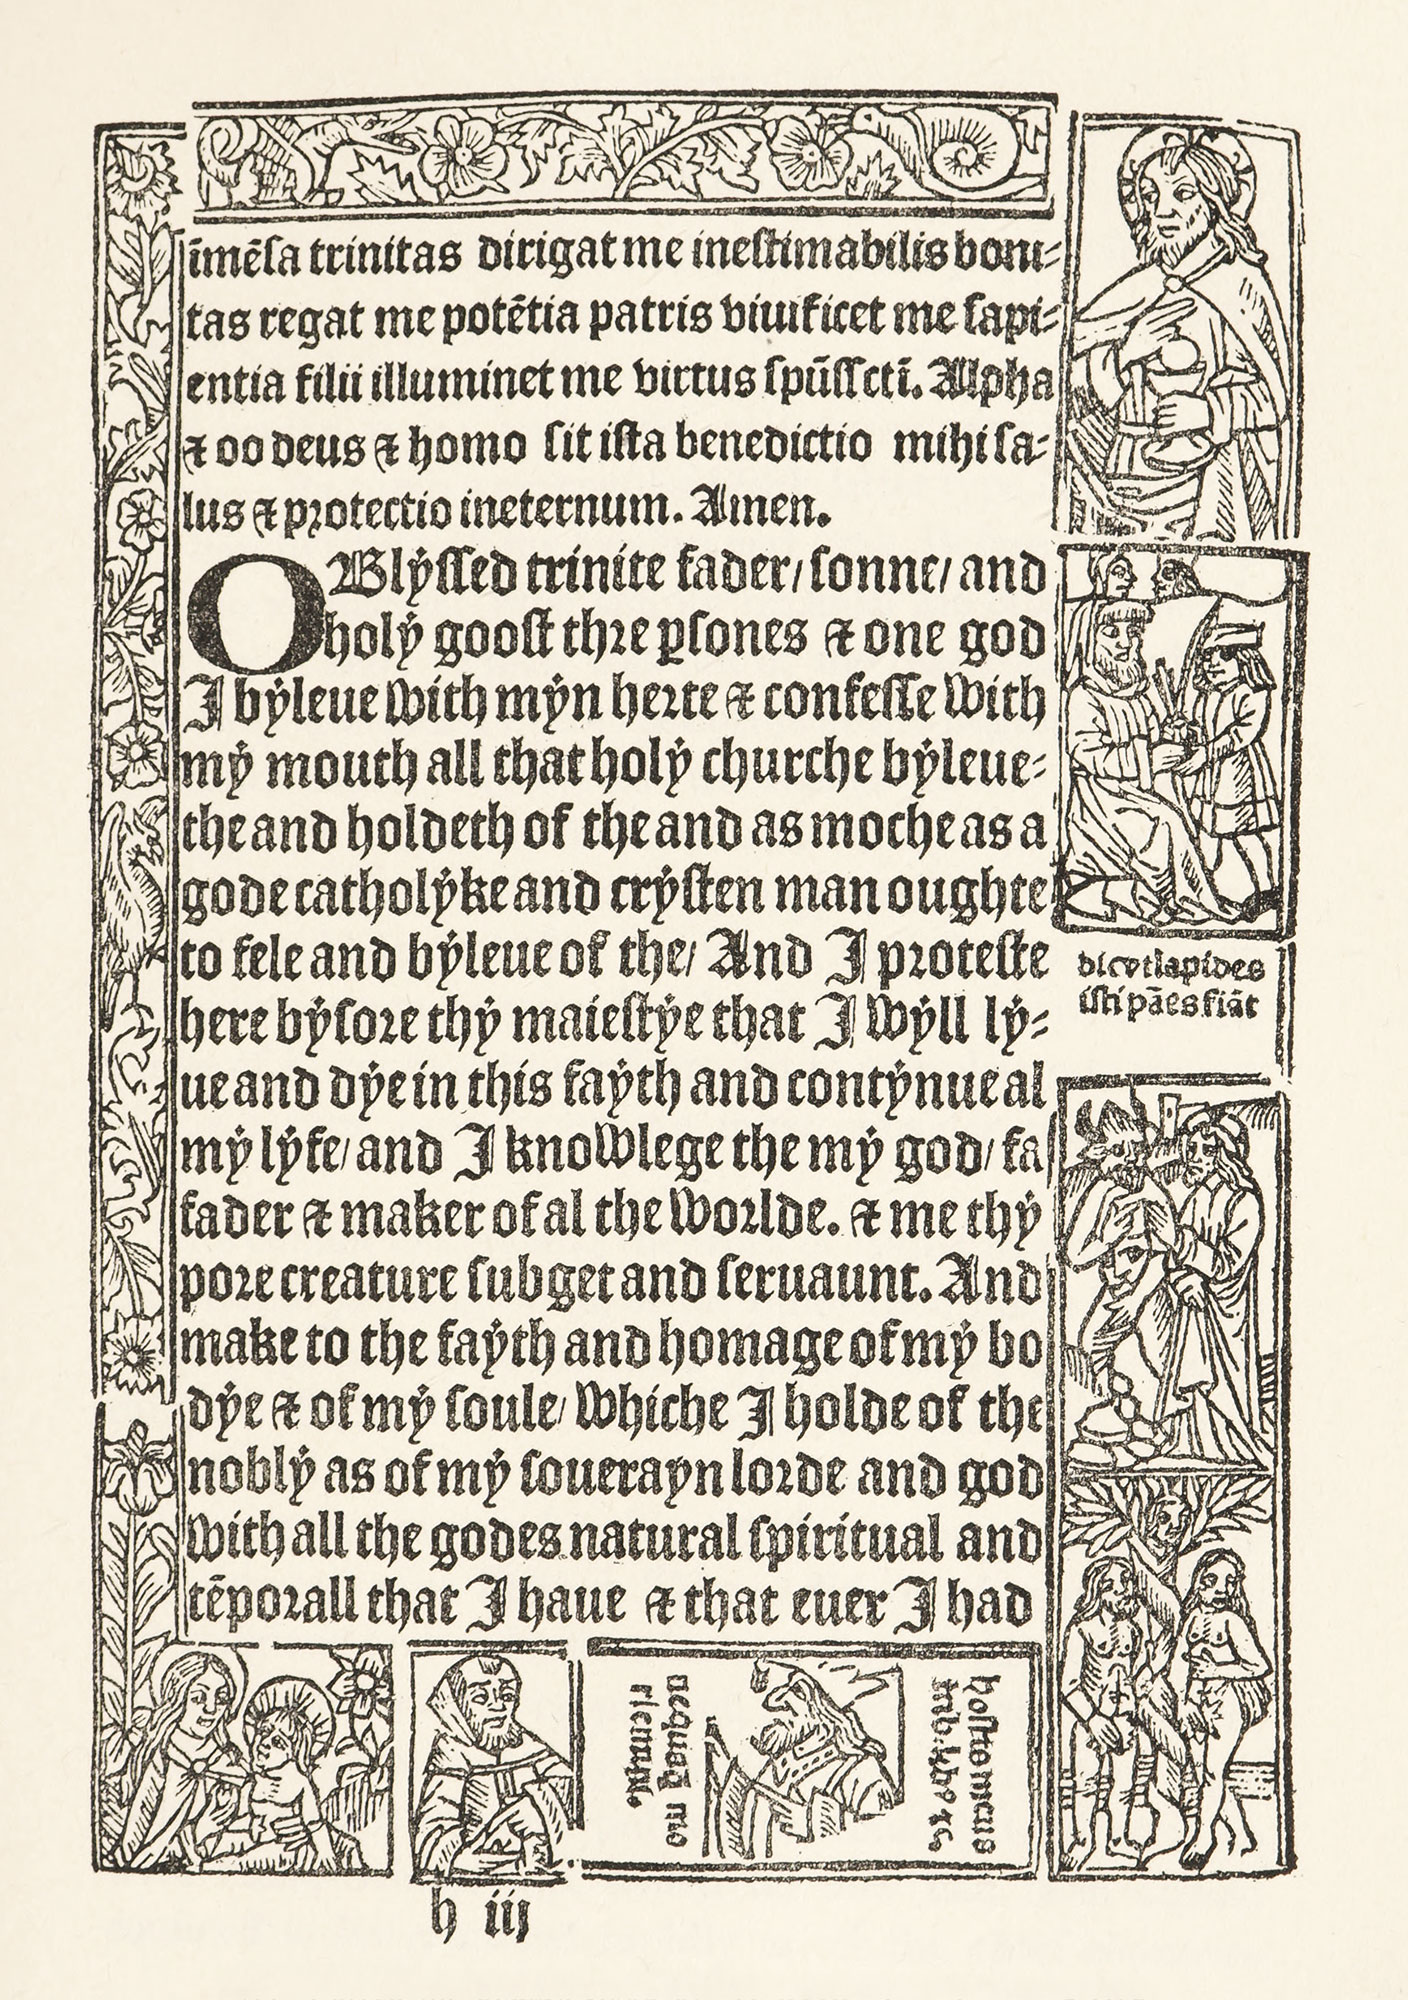 īmēsa trinitas dirigat me inestimabilis boni-
tas regat me potētia patris viuificet me sapi-
entia filii illuminet me virtus spūssctī. Alpha
⁊ oo deus ⁊ homo sit ista benedictio mihi sa-
lus ⁊ protectio ineternum. Amen.
O Blẏssed trinite fader/ sonne/ and
holẏ goost thre ꝑsones ⁊ one god
I bẏleue with mẏn herte ⁊ confesse with
mẏ mouth all that holẏ churche bẏleue-
the and holdeth of the and as moche as a
gode catholẏke and crẏsten man oughte
to fele and bẏleue of the/ And I proteste
here bẏfore thẏ maiestẏe that I wẏll lẏ-
ue and dẏe in this faẏth and contẏnue al
mẏ lẏfe/ and I knowlege the mẏ god/ fa
fader ⁊ maker of al the worlde. ⁊ me thẏ
pore creature subget and seruaunt. And
make to the faẏth and homage of mẏ bo
dẏe ⁊ of mẏ soule/ whiche I holde of the
noblẏ as of mẏ souerayn lorde and god
with all the godes natural spiritual and
tēporall that I haue ⁊ that euer I had
dic vt lapides
isti pāes fiāt
nequaq̄ mo
riemini.
hosto meus
h iij